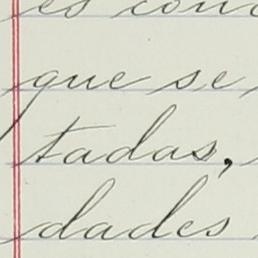 es con
que se
tadas,
dades